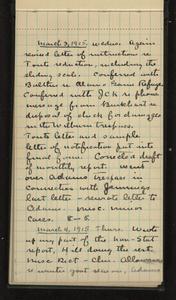 March 3, 1915. Wednes. Again
revised letter of instruction in
Toute reduction, including the
sliding scale. Conferred with
Bulkley re Alamo Farm Refuge
Conferred with J.C.K. re phone
message from Burkhart re
disposal of check for damages
in the Wilburn trespass.
Toute letter and sample
letter of notification put into
final form. Corrected draft
of monthly report. Went
over Adams trespass in
connection with Jennings
last letter - rewrote letter to
Adams. misc. minor
cases. 8-5
March 4, 1915 Thurs. Wrote
up my part of the non-Stat
report, Hill doing the rest.
Misc Rect - Clui. Allowances
re winter goat season, Adams